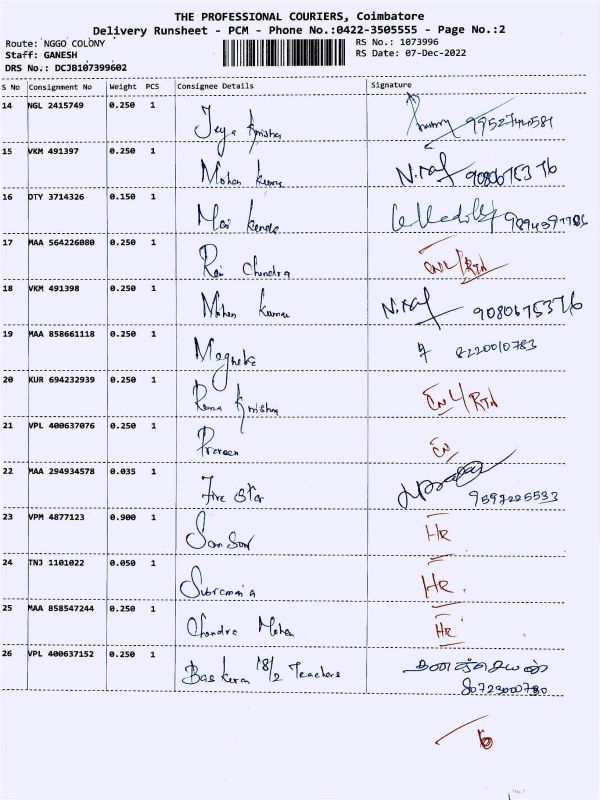 THE PROFESSIONAL COURIERS, Coimbatore
Delivery Runsheet - PCM - Phone No.:0422-3505555 - Page No.:2
Route: NGGO COLONY RS No.: 1073996
Staff: GANESH RS Date: 07-Dec-2022
DRS No.: DCJB107399602
S No Consignment No Weight PCS Consignee Details Signature
14 NGL 2415749 0.250 1 Jeya Krishna 9952744581
15 VKM 491397 0.250 1 Mohen Kumar N.Raj 9080675376
16 OTY 3714326 0.150 1
17 MAA 564226080 0.250 1 Rai Chandra CN4/RTN
18 VKM 491398 0.250 1 Mohen Kumar N.Raj 9080675376
19 MAA 858661118 0.250 1 8220010783
20 KUR 694232939 0.250 1 Rama Krishna CN4/RTN
21 VPL 400637076 0.250 1 Praveen CN
22 MAA 294934578 0.035 1 Five Star 9597225533
23 VPM 4877123 0.900 1 HR
24 TNJ 1101022 0.050 1 HR
25 MAA 858547244 0.250 1 Chandra Mohen HR
26 VPL 400637152 0.250 1 Baskeran 18/2 Teachers
8072300780
6